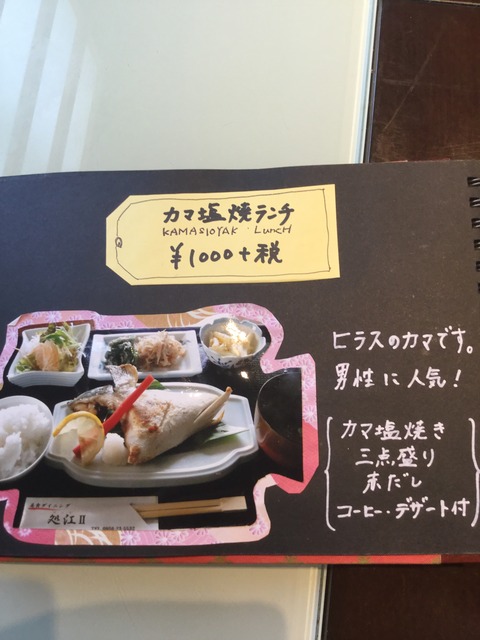 カマ塩焼ランチ
KAMASIOYAK LUNCH
¥1000+税
ヒラスのカマです。
男性に人気!
カマ塩焼き
三点盛り
赤だし
コーヒー・デザート付
処江II